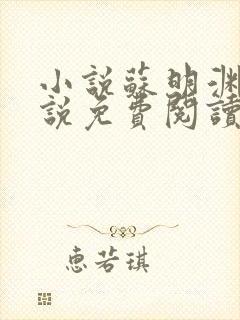 小說蘇明淵
說免費閱讀
惠若琪